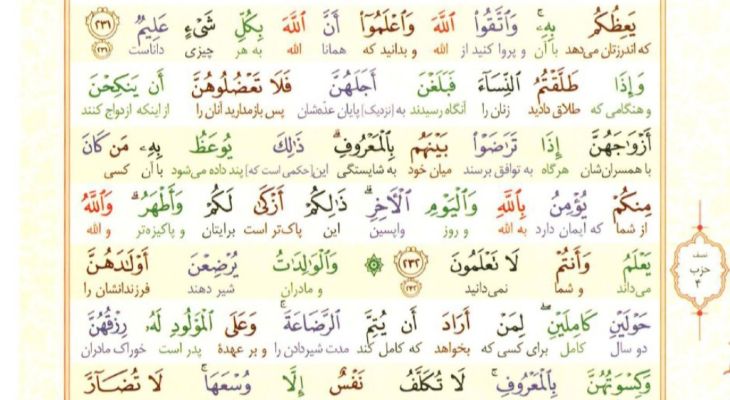 يَعِظُكُم بِهِۦۚ وَٱتَّقُوا۟ ٱللَّهَ وَٱعْلَمُوٓا۟ أَنَّ ٱللَّهَ بِكُلِّ شَىْءٍ عَلِيمٌ ﴿٢٣١﴾
که اندرزتان می‌دهد با آن و پروا کنید از الله و بدانید که همانا الله به هر چیزی داناست ﴿۲۳۱﴾
وَإِذَا طَلَّقْتُمُ ٱلنِّسَآءَ فَبَلَغْنَ أَجَلَهُنَّ فَلَا تَعْضُلُوهُنَّ أَن يَنكِحْنَ
و هنگامی که طلاق دادید زنان را آنگاه رسیدند به [نزدیک] پایان عدّه‌شان پس بازمدارید آنان را از اینکه ازدواج کنند
أَزْوَٰجَهُنَّ إِذَا تَرَٰضَوْا۟ بَيْنَهُم بِٱلْمَعْرُوفِۗ ذَٰلِكَ يُوعَظُ بِهِۦ مَن كَانَ
با همسران‌شان هرگاه به توافق برسند میان خود به شایستگی این [حکمی است که] پند داده می‌شود با آن کسی
مِنكُمْ يُؤْمِنُ بِٱللَّهِ وَٱلْيَوْمِ ٱلْءَاخِرِۗ ذَٰلِكُمْ أَزْكَىٰ لَكُمْ وَأَطْهَرُۗ وَٱللَّهُ
از شما که ایمان دارد به الله و روز واپسین این پاک‌تر است برایتان و پاکیزه‌تر و الله
يَعْلَمُ وَأَنتُمْ لَا تَعْلَمُونَ ﴿٢٣٢﴾ ۞ وَٱلْوَٰلِدَٰتُ يُرْضِعْنَ أَوْلَٰدَهُنَّ
می‌داند و شما نمی‌دانید ﴿۲۳۲﴾ و مادران شیر دهند فرزندانشان را
حَوْلَيْنِ كَامِلَيْنِۖ لِمَنْ أَرَادَ أَن يُتِمَّ ٱلرَّضَاعَةَۚ وَعَلَى ٱلْمَوْلُودِ لَهُۥ رِزْقُهُنَّ
دو سال کامل برای کسی که بخواهد که کامل کند مدت شیردادن را و بر عهدهٔ پدر است خوراک مادران
وَكِسْوَتُهُنَّ بِٱلْمَعْرُوفِۚ لَا تُكَلَّفُ نَفْسٌ إِلَّا وُسْعَهَاۚ لَا تُضَآرَّ
نصف
حزب
۴